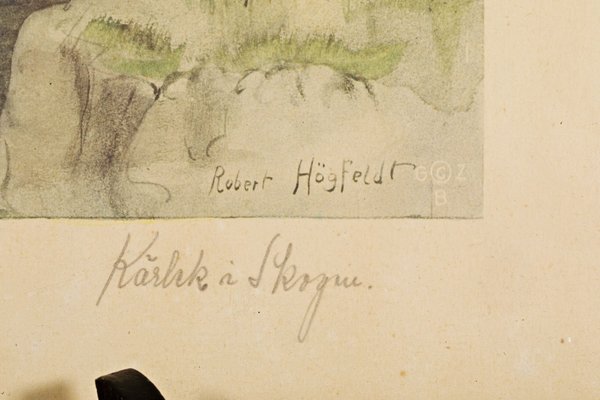 Robert Högfeldt
G © Z
B
Kärlek i Skogen.